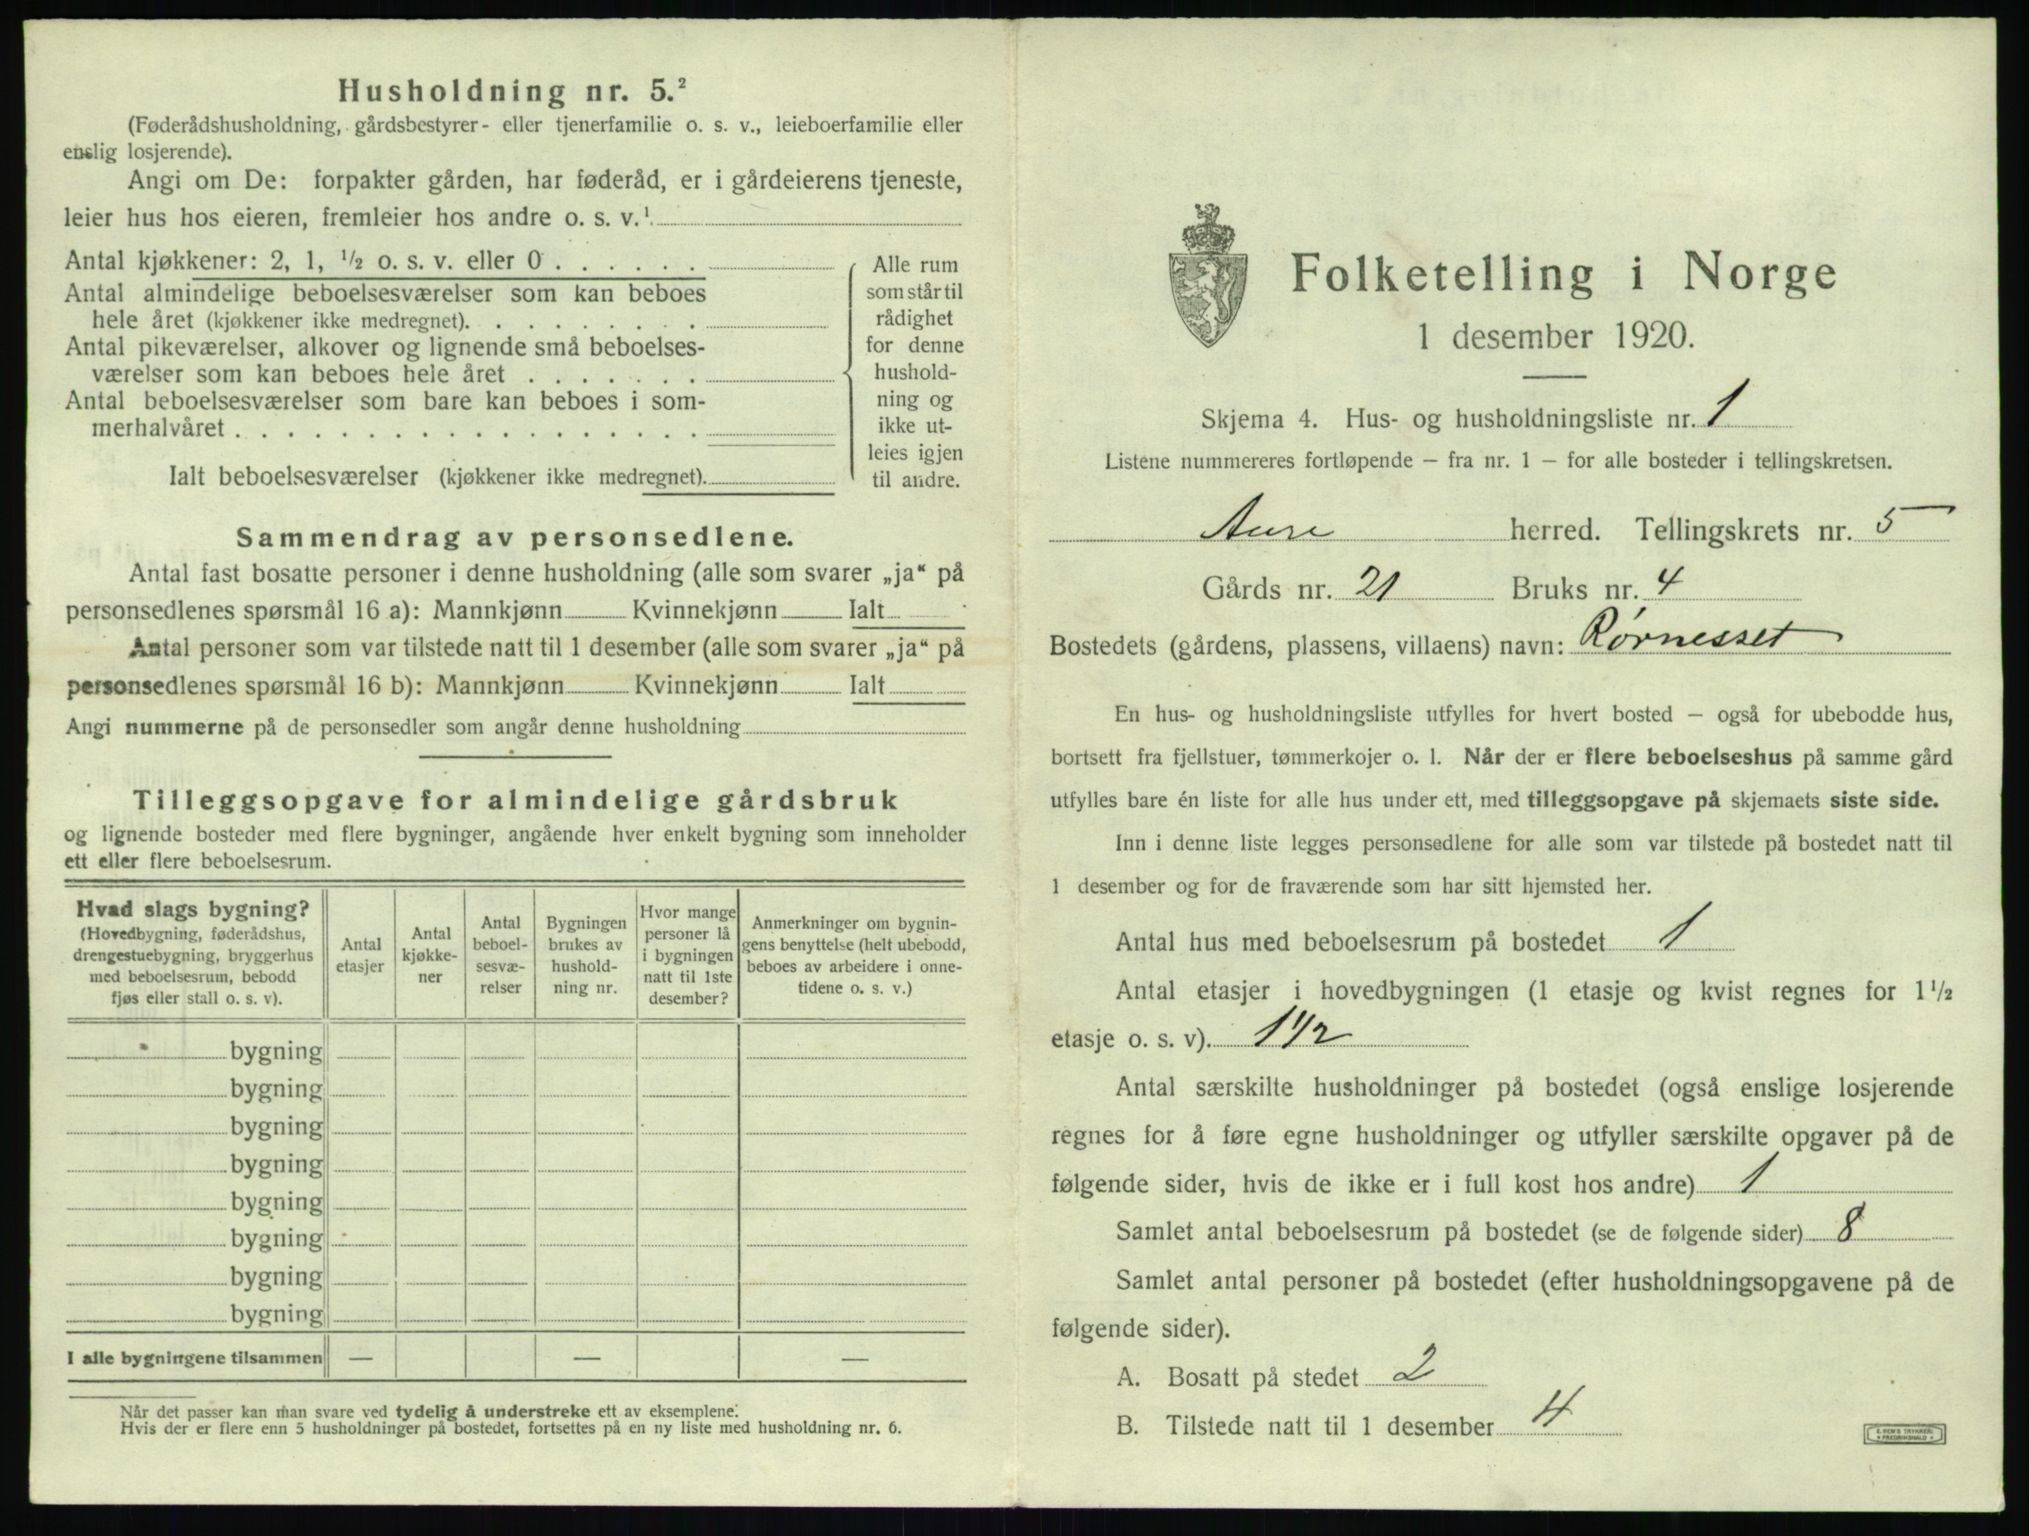 Husholdning nr. 5.²
(Føderådshusholdning, gårdsbestyrer- eller tjenerfamilie o. s. v., leieboerfamilie eller
enslig losjerende).
Angi om De: forpakter gården, har føderåd, er i gårdeierens tjeneste,
leier hus hos eieren, fremleier hos andre o. s. v.¹
Antal kjøkkener: 2, 1, ½ o. s. v. eller 0 . . . . . .
Antal almindelige beboelsesværelser som kan beboes
hele året (kjøkkener ikke medregnet). . . . . . . . .
Antal pikeværelser, alkover og lignende små beboelses-
værelser som kan beboes hele året . . . . . . .
Antal beboelsesværelser som bare kan beboes i som-
merhalvåret . . . . . . . . . . . . . . . . . .
Ialt beboelsesværelser (kjøkkener ikke medregnet).
Alle rum
som står til
rådighet
for denne
hushold-
ning og
ikke ut-
leies igjen
til andre.
Sammendrag av personsedlene.
Antal fast bosatte personer i denne husholdning (alle som svarer „ja“ på
personsedlenes spørsmål 16 a): Mannkjønn Kvinnekjønn Ialt
Antal personer som var tilstede natt til 1 desember (alle som svarer „ja“ på
personsedlenes spørsmål 16 b): Mannkjønn Kvinnekjønn Ialt
Angi nummerne på de personsedler som angår denne husholdning
Tilleggsopgave for almindelige gårdsbruk
og lignende bosteder med flere bygninger, angående hver enkelt bygning som inneholder
ett eller flere beboelsesrum.
Hvad slags bygning?
(Hovedbygning, føderådshus,
drengestuebygning, bryggerhus
med beboelsesrum, bebodd
fjøs eller stall o. s. v).
Antal
etasjer
Antal
kjøkke-
ner
Antal
beboel-
sesvæ-
relser
Bygningen
brukes av
hushold-
ning nr.
Hvor mange
personer lå
i bygningen
natt til 1ste
desember?
Anmerkninger om bygnin-
gens benyttelse (helt ubebodd,
beboes av arbeidere i onne-
tidene o. s. v.)
bygning
bygning
bygning
bygning
bygning
bygning
bygning
bygning
I alle bygningene tilsammen — — —
Når det passer kan man svare ved tydelig å understreke ett av eksemplene.
Hvis der er flere enn 5 husholdninger på bostedet, fortsettes på en ny liste med husholdning nr. 6.
Folketelling i Norge
1 desember 1920.
Skjema 4. Hus- og husholdningsliste nr. 1
Listene nummereres fortløpende – fra nr. 1 – for alle bosteder i tellingskretsen.
Aure herred. Tellingskrets nr. 5
Gårds nr. 21 Bruks nr. 4
Bostedets (gårdens, plassens, villaens) navn: Rørnesset
En hus- og husholdningsliste utfylles for hvert bosted – også for ubebodde hus,
bortsett fra fjellstuer, tømmerkojer o. l. Når der er flere beboelseshus på samme gård
utfylles bare én liste for alle hus under ett, med tilleggsopgave på skjemaets siste side.
Inn i denne liste legges personsedlene for alle som var tilstede på bostedet natt til
1 desember og for de fraværende som har sitt hjemsted her.
Antal hus med beboelsesrum på bostedet 1
Antal etasjer i hovedbygningen (1 etasje og kvist regnes for 1½
etasje o. s. v). 1½
Antal særskilte husholdninger på bostedet (også enslige losjerende
regnes for å føre egne husholdninger og utfyller særskilte opgaver på de
følgende sider, hvis de ikke er i full kost hos andre) 1
Samlet antal beboelsesrum på bostedet (se de følgende sider) 8
Samlet antal personer på bostedet (efter husholdningsopgavene på de
følgende sider).
A. Bosatt på stedet 2
B. Tilstede natt til 1 desember 4